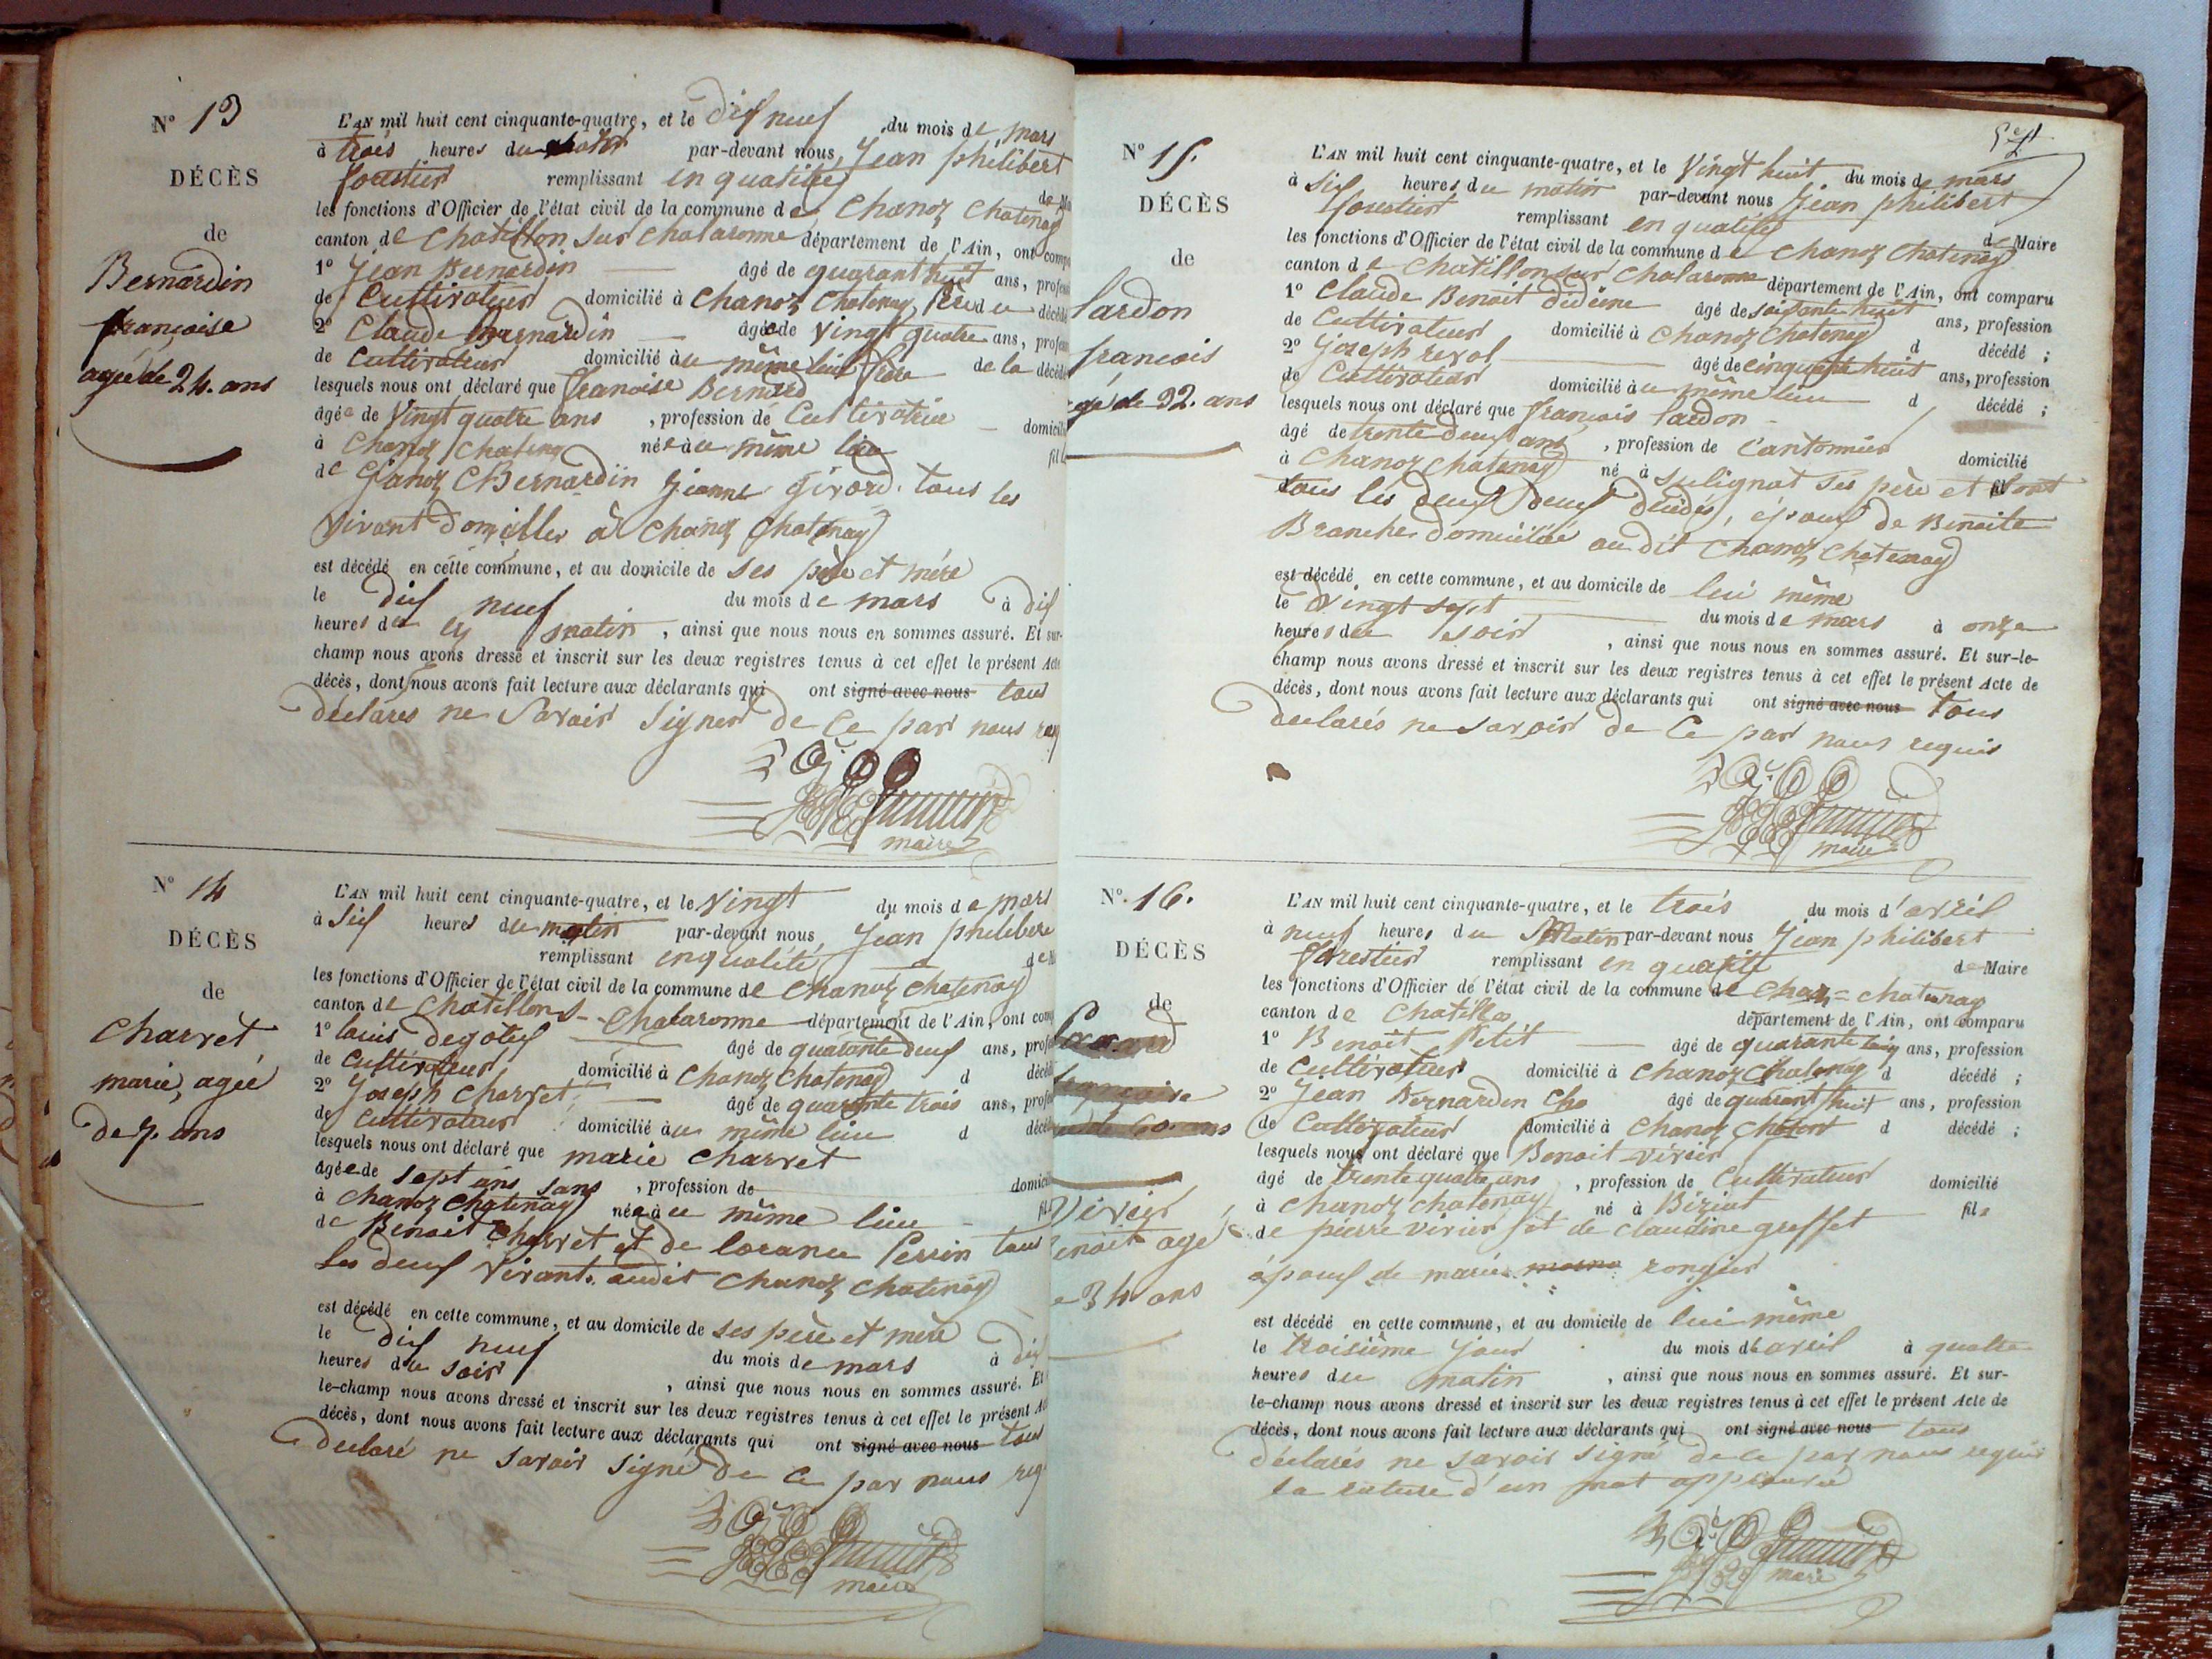 N° 13
DÉCÈS
de
Bernardin
françoise
agée de 24. ans
L'AN mil huit cent cinquante-quatre, et le dix neuf du mois de mars
à trois heures du par-devant nous, Jean philibert
forestier remplissant en qualité de
les fonctions d'Officier de l'état civil de la commune de Chanoz Chatenay
canton de Chatillon sur chalaronne département de l'Ain, ont comp
1° Jean Bernardin âgé de quarant huit ans, profess
de Cultivateur domicilié à Chanoz Chatenay, Père du décédé
2° Claude Bernardin âgé de vingt quatre ans, profess
de cultivateur domicilié àu même lieu frère de la décédé
lesquels nous ont déclaré que franoise Bernard
âgée de Vingt quatre ans , profession de Cultivatrice domicili
à Chanoz Chateny née àu même lieu fil
de Bernardin Jeanne Girard. tous les
vivant domiciller à Chanoz Chatenay
est décédé en cette commune, et au domicile de ses père et mère
le dix neuf du mois de mars à dix
heures du matin , ainsi que nous nous en sommes assuré. Et sur-
champ nous avons dressé et inscrit sur les deux registres tenus à cet effet le présent Acte
décès, dont nous avons fait lecture aux déclarants qui ont signé avec nous tous
déclarés ne savoir signer de ce par nous req
maire
N° 14
DÉCÈS
de
Charvet
marie, agée
de 7. ans
L'AN mil huit cent cinquante-quatre, et le vingt du mois de mars
à six heures du matin par-devant nous Jean philibert
remplissant en qualité de
les fonctions d'Officier de l'état civil de la commune de Chanoz Chatenay
canton de Chatillon s- Chalaronne département de l'Ain, ont com
1° louis degoteyx âgé de quarante deux ans, profes
de Cultivateur domicilié à Chanoz Chatenay d décéd
2° Joseph Charvet âgé de quarante trois ans, profes
de Cultivateur domicilié àu même lieu d décé
lesquels nous ont déclaré que marie Charvet
âgée de sept ans sans , profession de domicil
à Chanoz Chatenay née àu même lieu fil
de Benoit Charvet et de Perrin tous
les deux vivant. audit Chanoz Chatenay
est décédé en cette commune, et au domicile de ses père et mère
le dix neuf du mois de mars à dix
heures du soir , ainsi que nous nous en sommes assuré. Et
le-champ nous avons dressé et inscrit sur les deux registres tenus à cet effet le présent Ac
décès, dont nous avons fait lecture aux déclarants qui ont signé avec nous tous
declaré ne savoir signé de ce par nous req
maire
N° 15.
DÉCÈS
de
lardon
francois
agé de 32. ans
L'AN mil huit cent cinquante-quatre, et le Vingt huit du mois de mars
à six heures du matin par-devant nous Jean philibert
forestier remplissant en qualité de Maire
les fonctions d'Officier de l'état civil de la commune de Chanoz Chatenay
canton de Chatillon sur Chalaronne département de l'Ain, ont comparu
1° Claude Benoit âgé de soixante huit ans, profession
de Cultivateur domicilié à Chanoz Chatenay d décédé ;
2° Joseph revol âgé de cinquante huit ans, profession
de Cultivateur domicilié àu même lieu d décédé ;
lesquels nous ont déclaré que francois lardon
âgé de trente deux ans , profession de Cantonnier domicilié
à Chanoz Chatenay né à sulignat ses père et font
tous les deux deux décidés, époux de Benoite
Branche domicilié au dit Chanoz Chatenay
est décédé en cette commune, et au domicile de lui même
le Vingt sept du mois de mars à onze
heures du soir , ainsi que nous nous en sommes assuré. Et sur-le-
champ nous avons dressé et inscrit sur les deux registres tenus à cet effet le présent Acte de
décès, dont nous avons fait lecture aux déclarants qui ont signé avec nous tous
declarés ne savoir de ce par nous requis
maire
N°. 16.
DÉCÈS
de
françoise
de 60. ans
Vivier
Benoit agé
de 34 ans
L'AN mil huit cent cinquante-quatre, et le trois du mois d'avril
à neuf heures du Matin par-devant nous Jean philibert
forestier remplissant en qualité de Maire
les fonctions d'Officier de l'état civil de la commune de Chaz = chatenay
canton de Chatillo département de l'Ain, ont comparu
1° Benoit Petit âgé de quarante ans, profession
de Cultivateur domicilié à Chanoz Chatenay d décédé ;
2° Jean Bernardin âgé de quarant huit ans, profession
de Cultivateur domicilié à Chanoz d décédé ;
lesquels nous ont déclaré que Benoit vivier
âgé de trente quatre ans , profession de Cultivateur domicilié
à Chanoz Chatenay né à Biziat fils
de pierre vivier et de claudine greffet
époux de marie rongier
est décédé en cette commune, et au domicile de lui même
le troisième jour du mois d'avril à quatre
heures du matin , ainsi que nous nous en sommes assuré. Et sur-
le-champ nous avons dressé et inscrit sur les deux registres tenus à cet effet le présent Acte de
décès, dont nous avons fait lecture aux déclarants qui ont signé avec nous tous
déclarés ne savoir signé de ce par nous requis
la rature d'un mot approuvé
maire